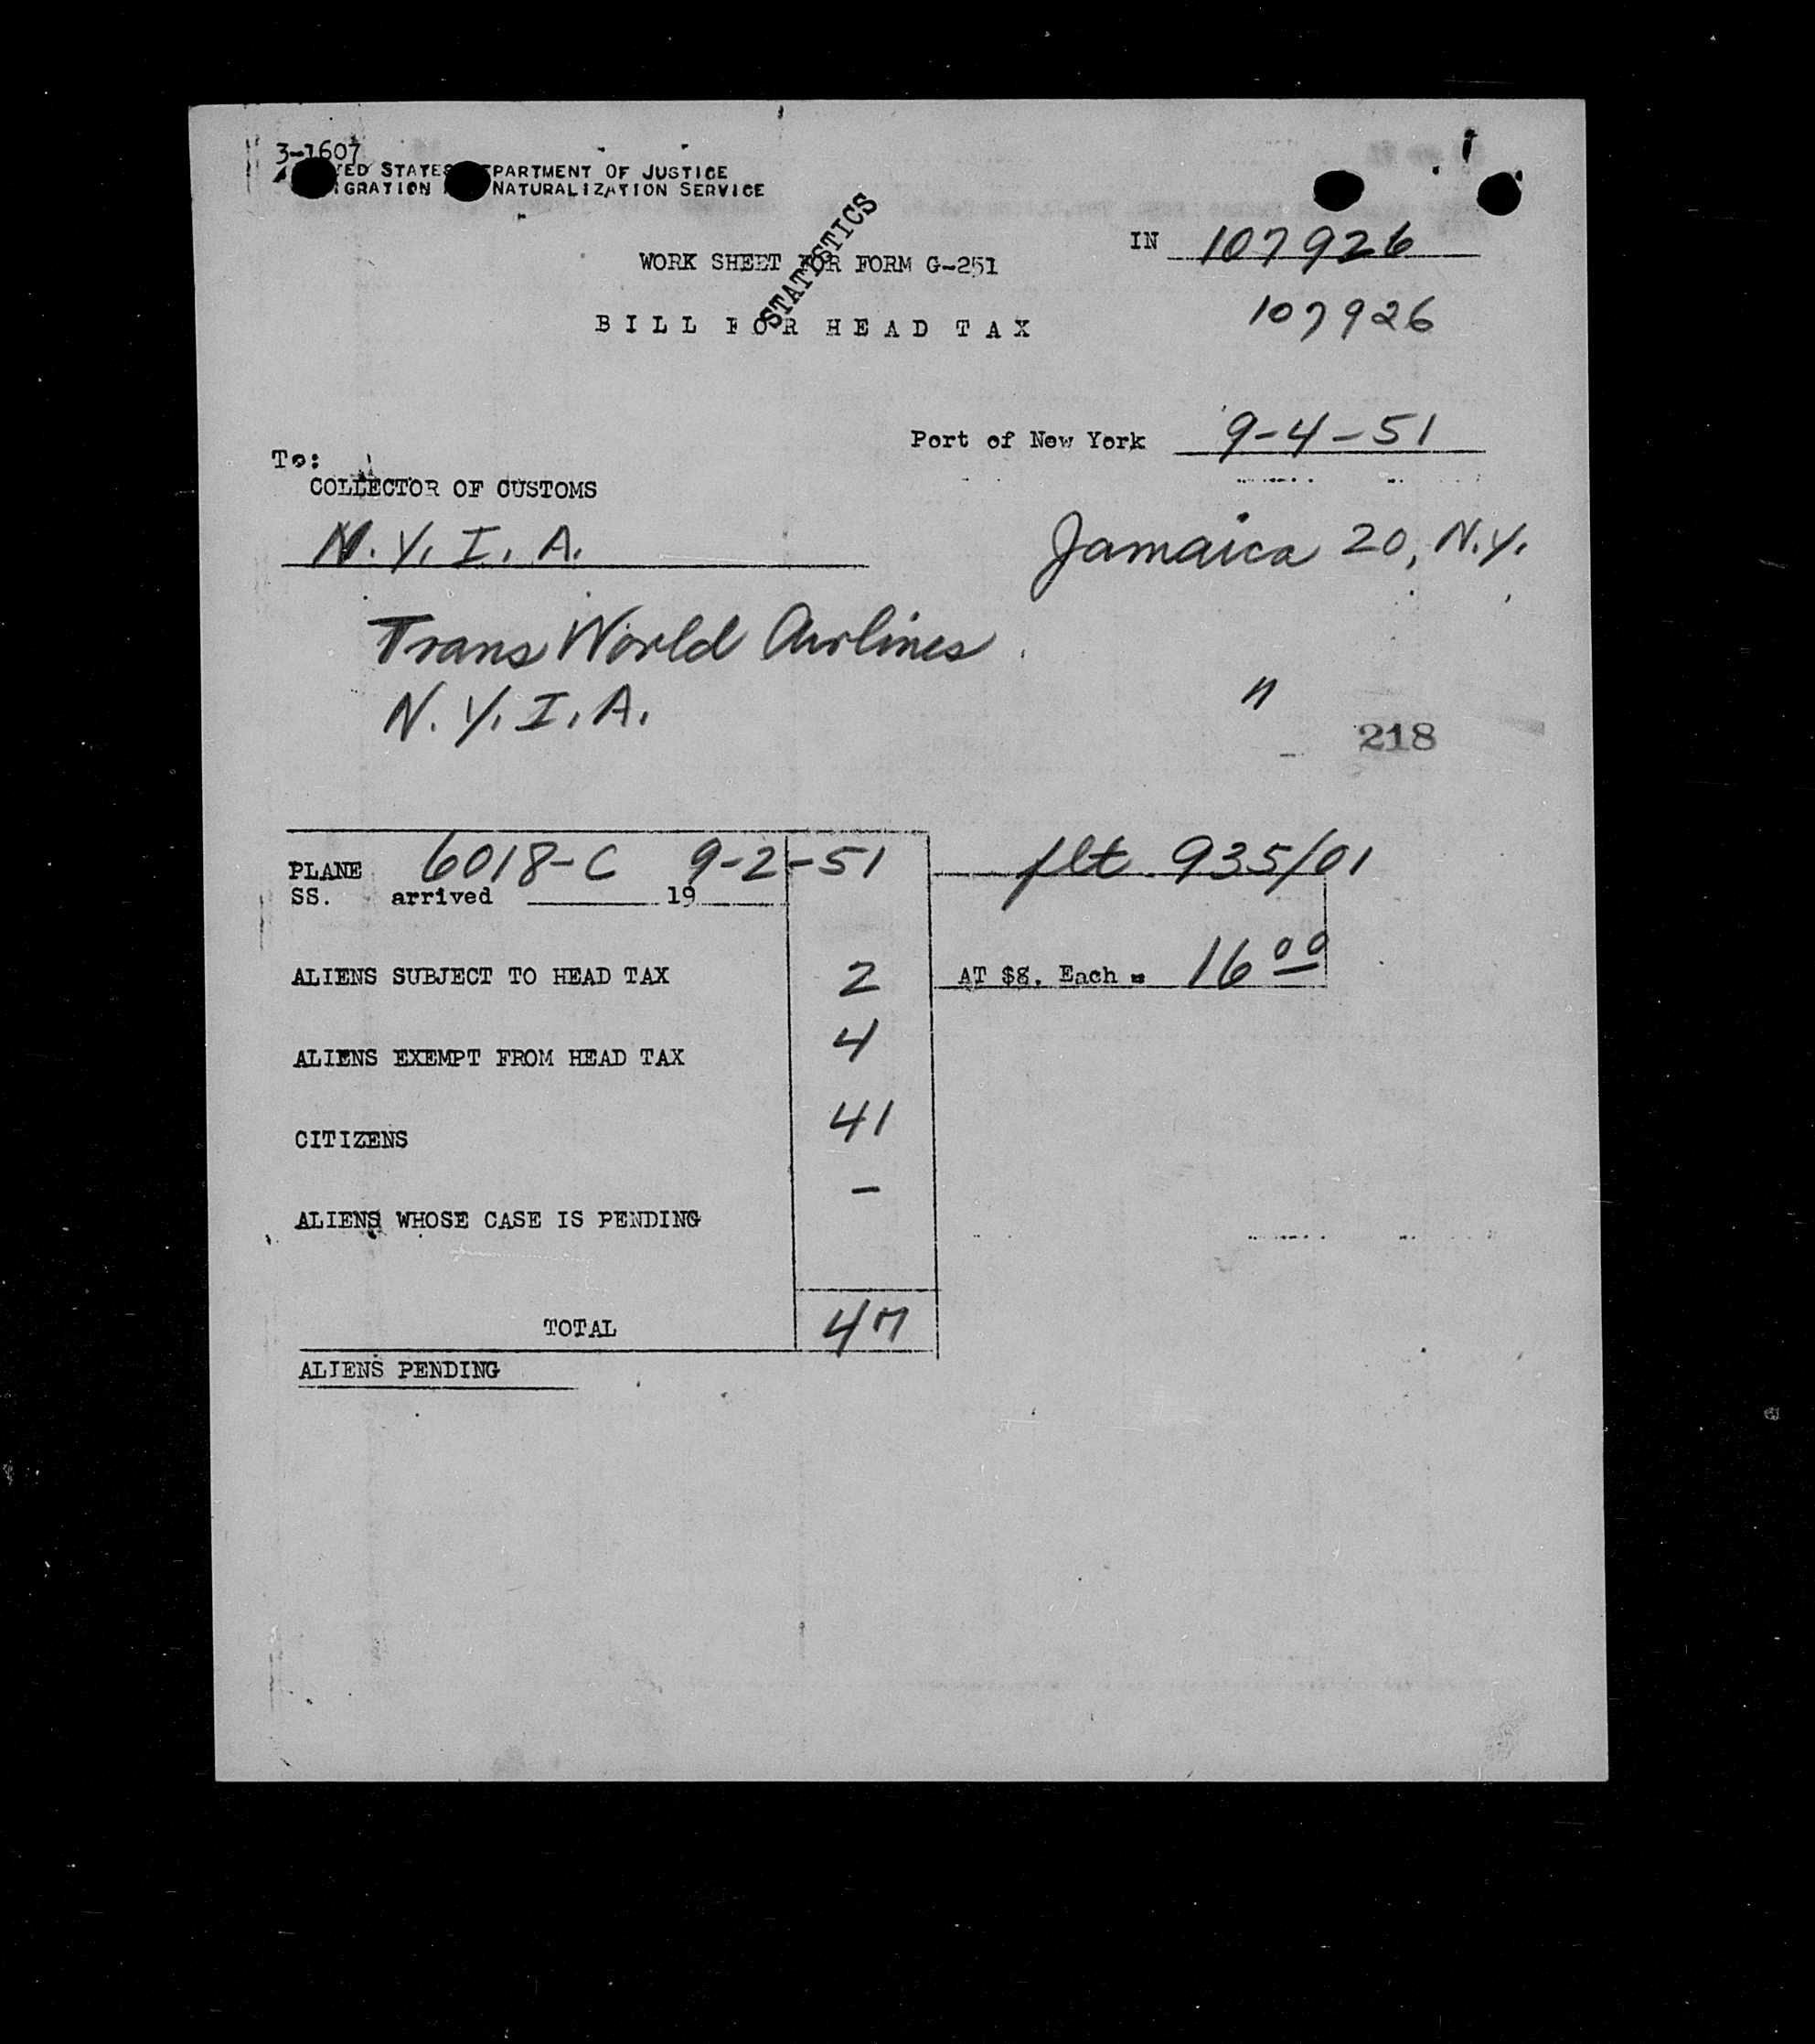 3-1607
TED STATES PARTMENT OF JUSTICE
GRATION NATURALIZATION SERVICE
STATISTICS
IN 107926
WORK SHEET FOR FORM G-251
107926
BILL FOR HEAD TAX
Port of New York 9-4-51
To:
COLLECTOR OF CUSTOMS
N.Y.I.A. Jamaica 20, N.Y.
Trans World Airlines
N.Y.I.A. "
218
PLANE 6018-C 9-2-51 flt. 935/01
SS. arrived 19
ALIENS SUBJECT TO HEAD TAX 2 AT $8. Each = 16 00
ALIENS EXEMPT FROM HEAD TAX 4
CITIZENS 41
ALIENS WHOSE CASE IS PENDING -
TOTAL 47
ALIENS PENDING